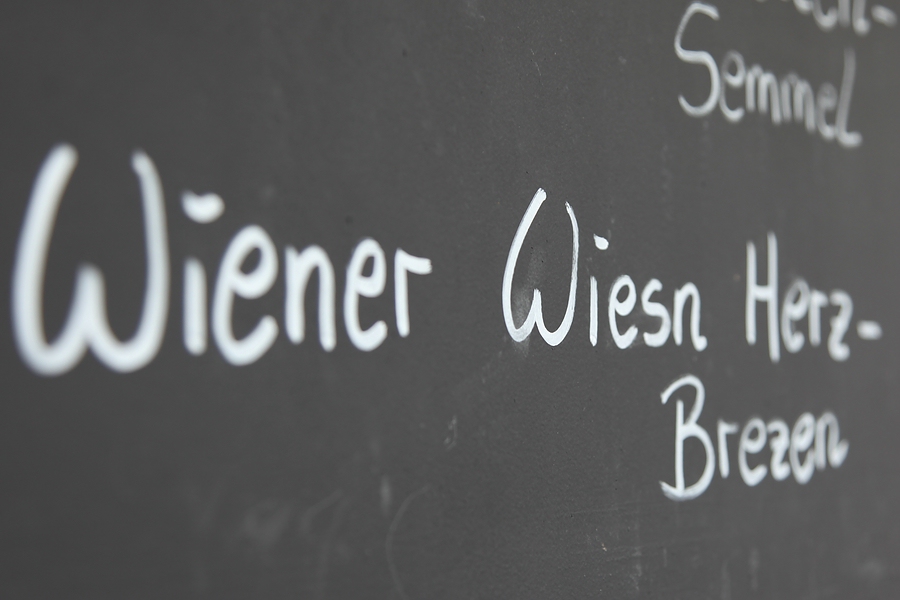 Semmel
Wiener Wiesn Herz-
Brezen